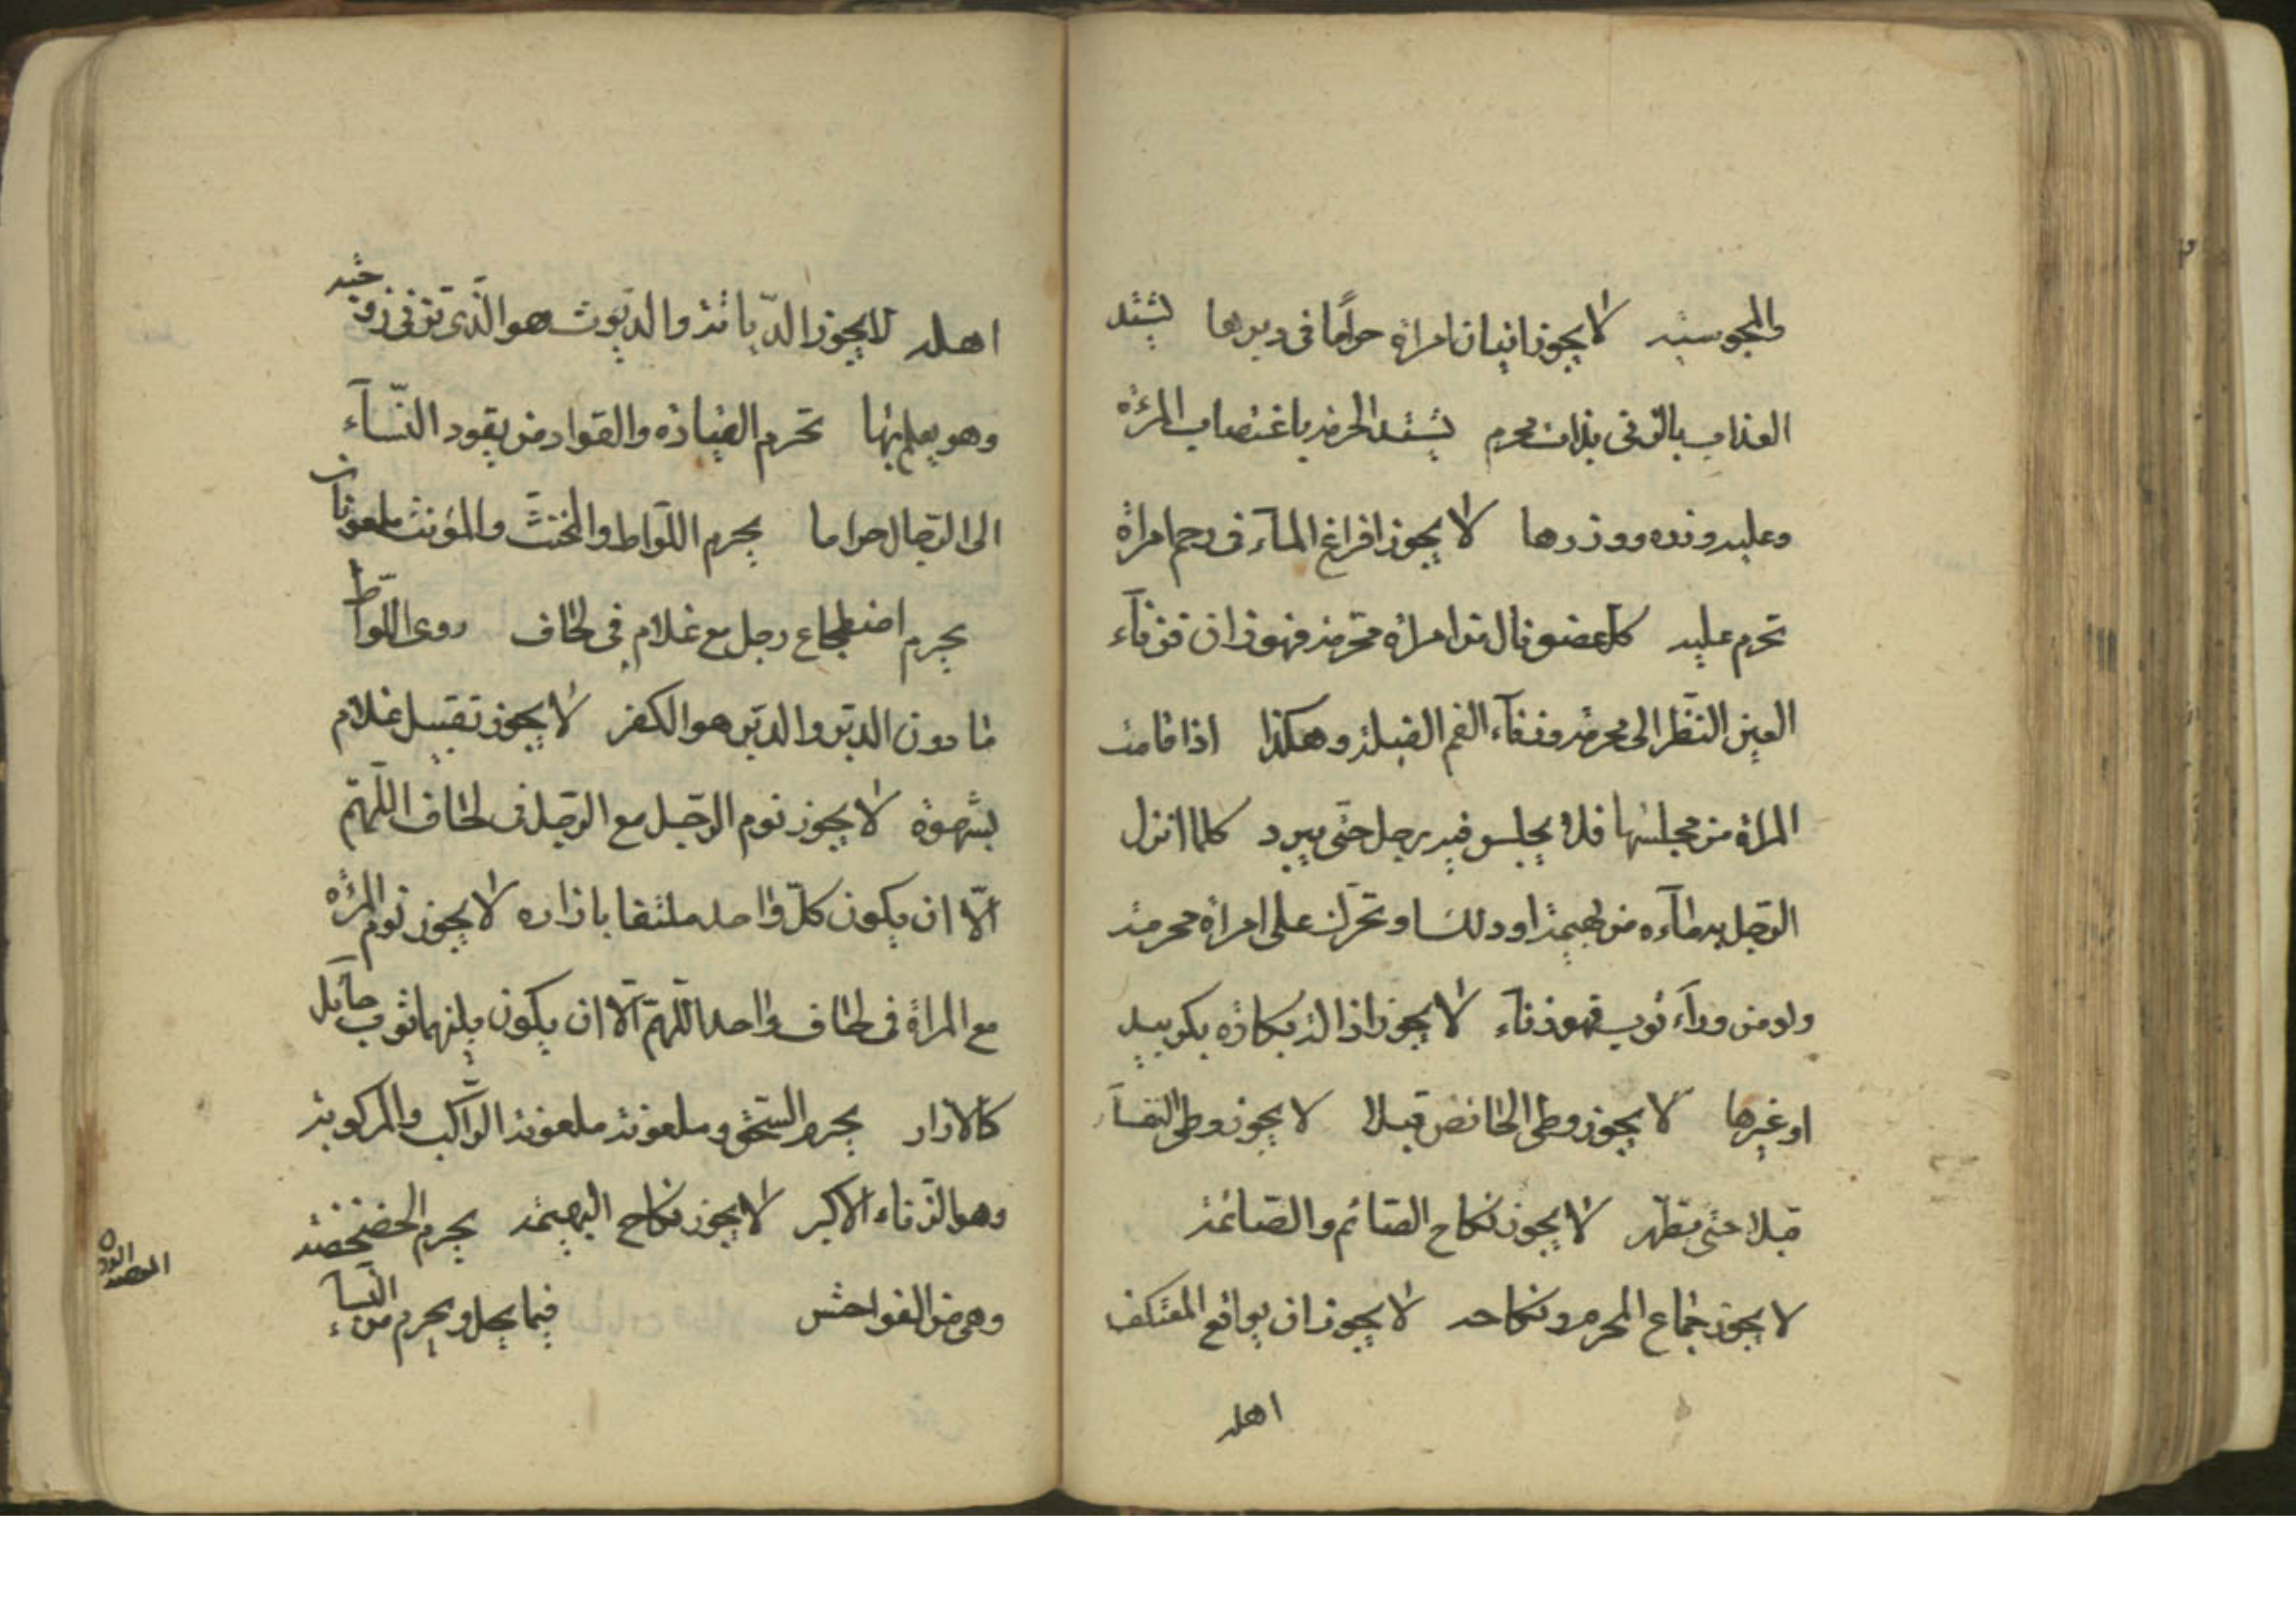 والمجوسیه لا یجوز اتیان امراة حرامًا فی دبرها یشتد
العذاب بالزنی بذات محرم یشتد الحرمة باغتصاب المرئة
وعلیه وزره ووزرها لا یجوز افراغ المآء فی رحم امراة
تحرم علیه کل عضو نال من امراة محرمة فهو زان فزنآء
العین النّظر الی محرمة وزنآء الفم القبلة وهکذا اذا قامت
المراة من مجلسها فلا یجلس فیه رجل حتی یبرد کلما انزل
الرّجل به مآءه من بهیمة او دلك او تحرّك علی امراة محرمة
ولو من ورآء ثوب فهو زنآء لا یجوز اذالة بکارة بکر بید
او غیرها لا یجوز وطی الحائض قبلا لا یجوز وطی النفسآء
قبلا حتی تطهّر لا یجوز نکاح الصّائم والصّائمة
لا یجوز جماع المحرم ونکاحه لا یجوز ان یواقع المعتکف
اهله
اهله لا یجوز الدّیاثة والدّیّوث هو الّذی تزنی زوجته
وهو یعلم بها تحرم القیادة والقواد من یقود النّسآء
الی الرّجال حراما یحرم اللّواط والمخنّث والمؤنث ملعونان
یحرم اضطجاع رجل مع غلام فی لحاف روی اللّواط
ما دون الدبر والدبر هو الکفر لا یجوز تقبیل غلام
بشهوة لا یجوز نوم الرّجل مع الرّجل فی لحاف اللّهمّ
الّا ان یکون کلّ واحد ملتفا بازاره لا یجوز نوم المرئة
مع المراة فی لحاف واحد اللّهمّ الّا ان یکون بینهما ثوب حآئل
کالازار یحرم السّحق وملعونة ملعونة الرّاکبة والمرکوبة
وهو الزّناء الاکبر لا یجوز نکاح البهیمة یحرم الخضخضة
وهی من الفواحش فیما یحل ویحرم من النّسآء